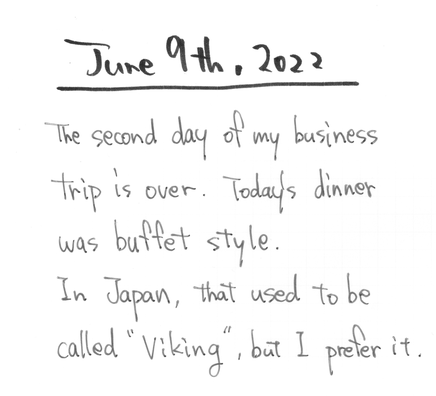 June 9th, 2022
The second day of my business
trip is over. Today's dinner
was buffet style.
In Japan, that used to be
called "Viking", but I prefer it.